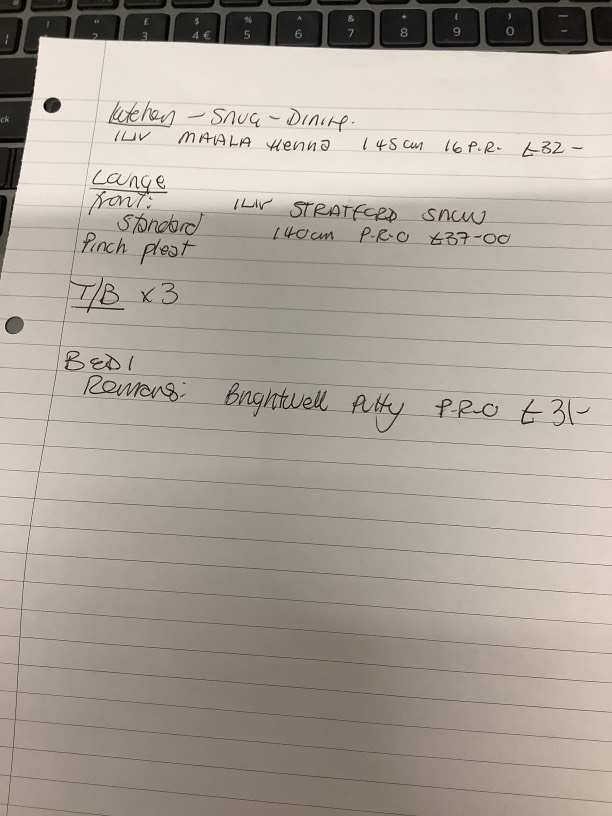 Kitchen - Snug - Dining.
ILIV MAALA Henna 145cm 16 P.R. £32-
Lounge
front: ILIV STRATFORD SNOW
Standard 140cm P-R-O £37-00
Pinch pleat
T/B x 3
BED 1
Romans: Brightwell Putty P-R-O £31-